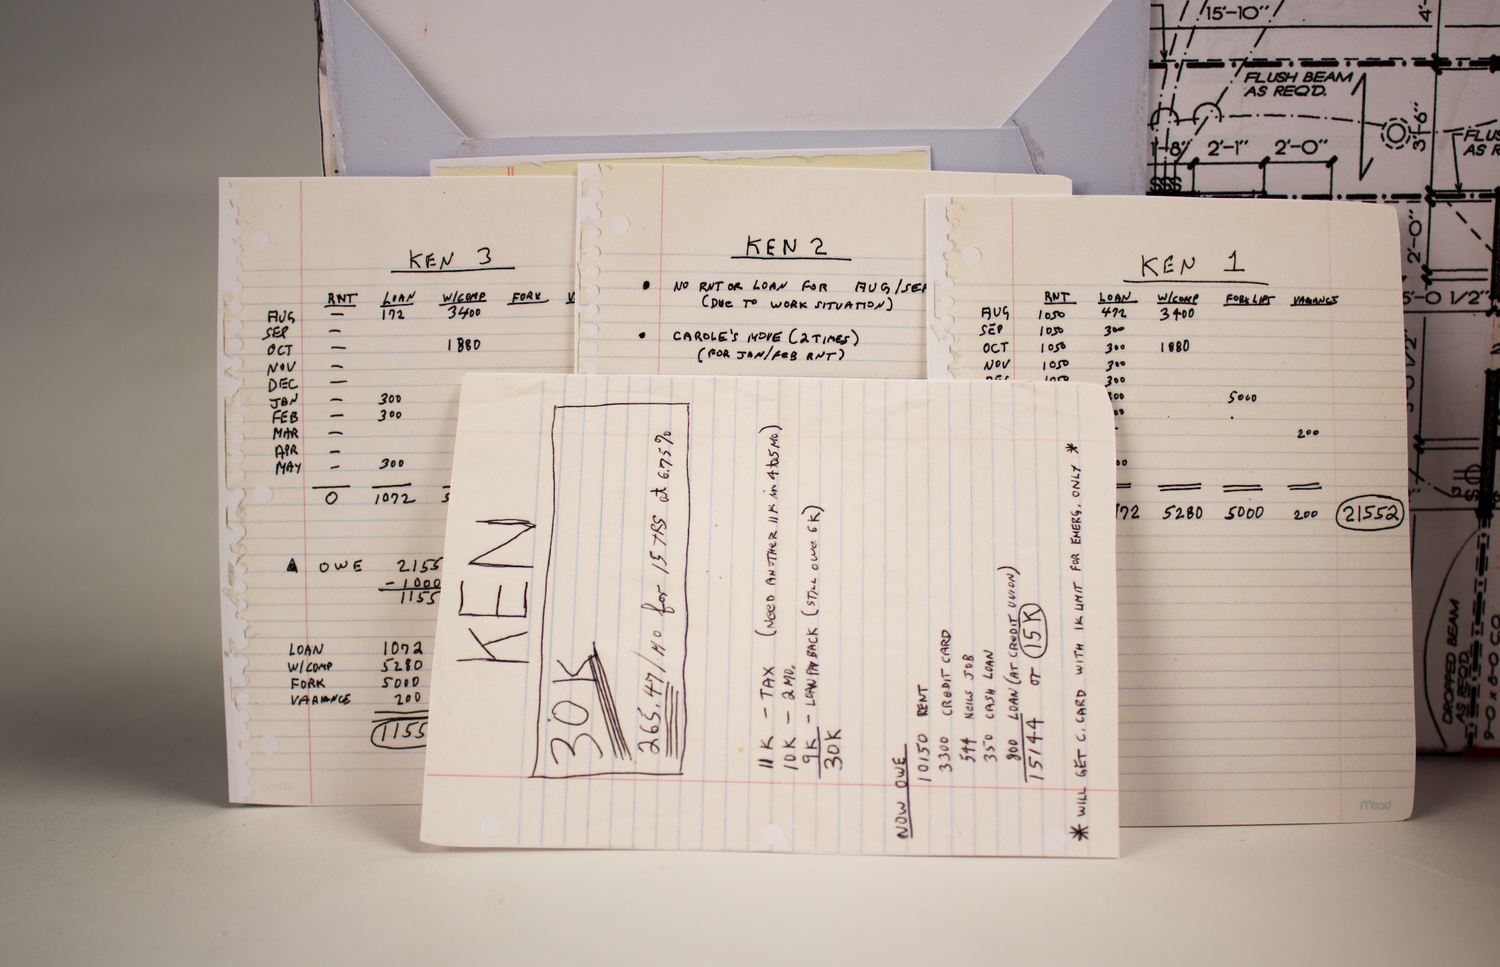 KEN 3
RNT LOAN W/COMP FORK V
AUG — 172 3400
SEP —
OCT — 1880
NOV —
DEC —
JAN — 300
FEB — 300
MAR —
APR —
MAY — 300
0 1072 5
OWE 2155
- 1000
1155
LOAN 1072
W/COMP 5280
FORK 5000
VARIANCE 200
1155
KEN 2
• NO RNT OR LOAN FOR AUG/SEP
(DUE TO WORK SITUATION)
• CAROLE'S MOVE (2 TIMES)
(FOR JAN/FEB RNT)
KEN 1
RNT LOAN W/COMP FORKLIFT VARIANCE
AUG 1050 472 3400
SEP 1050 300
OCT 1050 300 1880
NOV 1050 300
DEC 1050 300
00 5000
00
- 200
00
172 5280 5000 200 21552
Mead
KEN
30K
265.47/MO for 15 YRS at 6.75%
11K - TAX (NEED ANOTHER 11K in 4to5 MO)
10K - 2 MO.
9K - LOAN PAYBACK (STILL OWE 6K)
30K
NOW OWE
10150 RENT
3300 CREDIT CARD
544 NEILS JOB
350 CASH LOAN
800 LOAN (AT CREDIT UNION)
15144 or 15K
* WILL GET C. CARD WITH 1K LIMIT FOR EMERG. ONLY *
15'-10"
4'-
FLUSH BEAM
AS REQ'D.
3'-6"
FLUS
AS R
1'-8" 2'-1" 2'-0"
2'-0"
5'-0 1/2"
DROPPED BEAM
AS REQ'D.